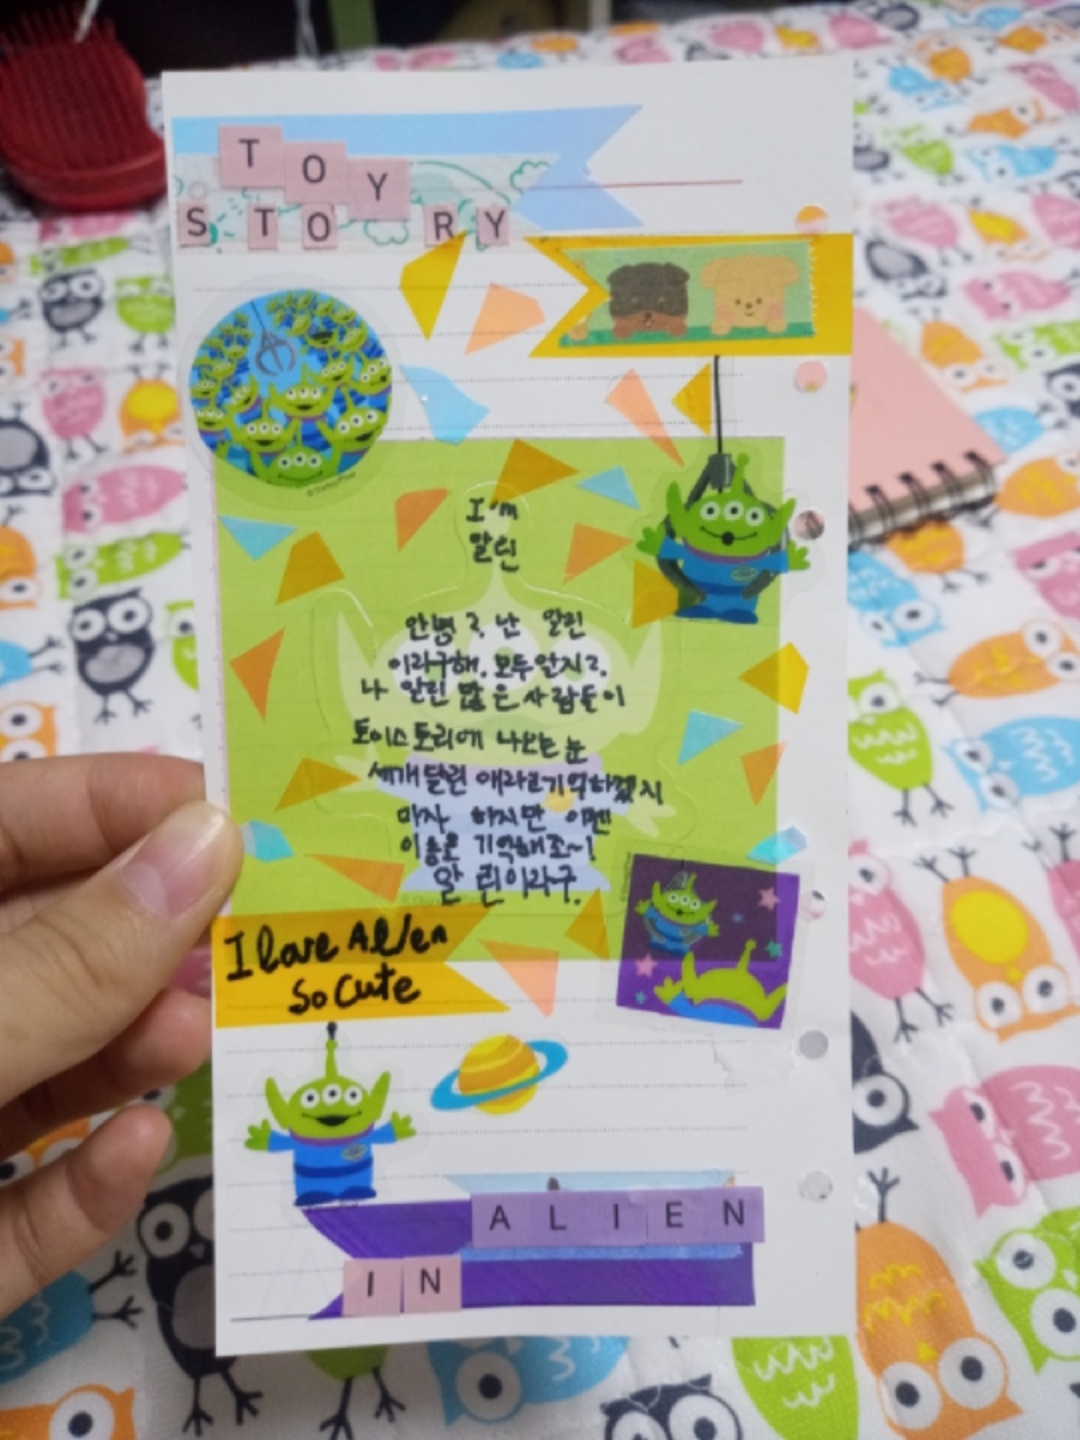 TOY
STORY
I'm
알린
안녕?. 난 알린
이라구해. 모두알지?.
나 알린 많은사람들이
토이스토리에 나오는눈
세개달린 애라고기억하겠지
마자 하지만 이젠
이름로 기억해조~!
알린이라구.
I love Alien
So Cute
ALIEN
IN